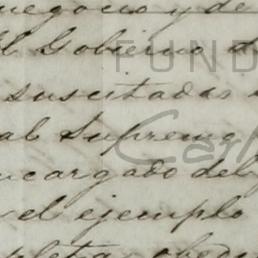 negocio y de
el Gobierno d
suscitadas
al Supremo
ncargado del
el ejemplo
FUND
Carl